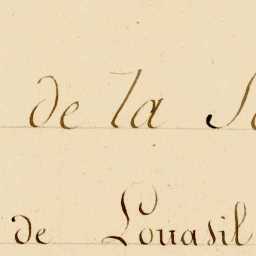 de la S
de Louasil